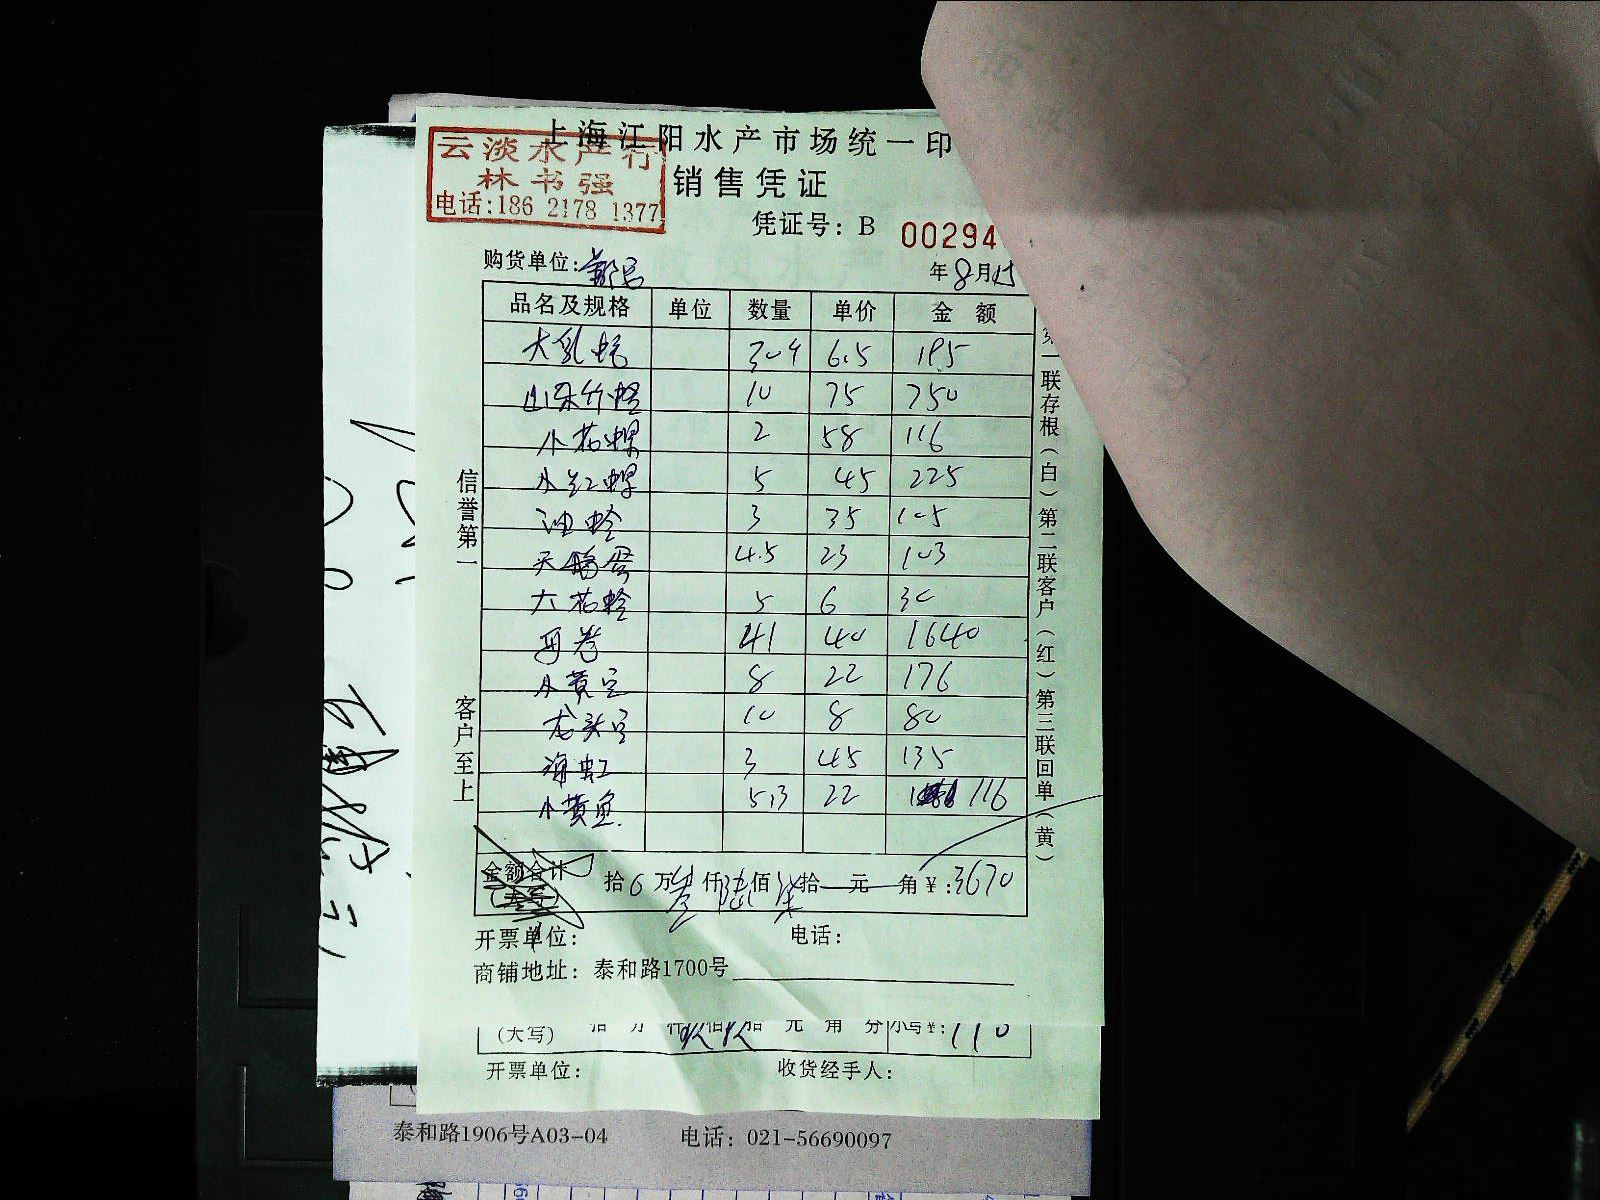 上海江阳水产市场统一印
云淡水产行
林书强
电话:186 2178 1377
销售凭证
凭证号: B 00294
购货单位:
年8月15
品名及规格 单位 数量 单价 金额
大乳蛤 304 6.5 195
山东竹蛏 10 75 750
小花螺 2 58 116
小红螺 5 45 225
油蛤 3 35 105
天鹅蛋 4.5 23 103
大花蛤 5 6 30
丹卷 41 40 1640
小黄豆 8 22 176
龙头豆 10 8 80
海虹 3 45 135
小黄鱼 5.3 22 116
金额合计
(大写)
拾 万叁仟陆佰柒拾 元 角 ¥:3670
开票单位: 电话:
商铺地址: 泰和路1700号
信誉第一 客户至上
第一联存根(白)第二联客户(红)第三联回单(黄)
(大写) 拾 万 仟 佰 拾 元 角 分 小写¥: 110
开票单位: 收货经手人:
泰和路1906号A03-04 电话: 021-56690097